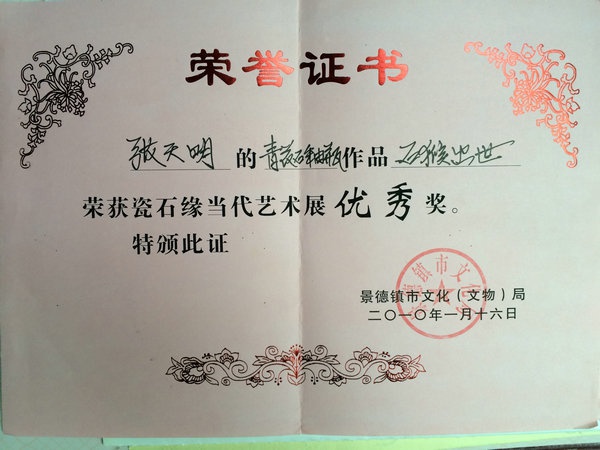 荣誉证书
张天明的青花石釉瓶作品石猴出世
荣获瓷石缘当代艺术展优秀奖。
特颁此证
景德镇市文化（文物）局
二〇一〇年一月十六日